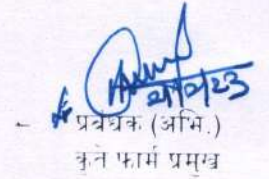 21/2/23
प्रबंधक (अभि.)
कृते फार्म प्रमुख